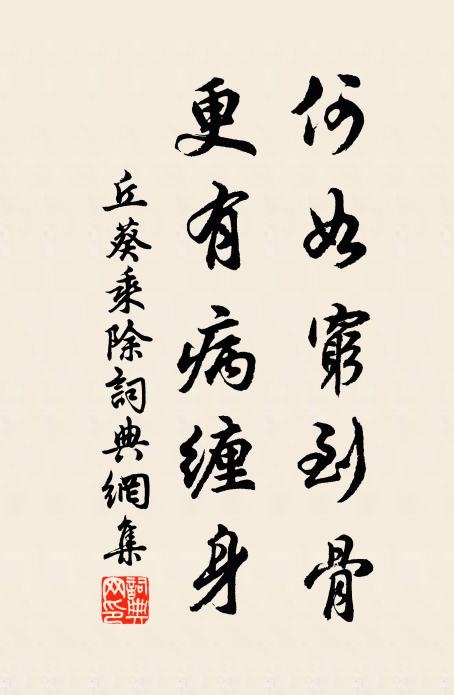 何如窮到骨
更有病纏身
丘葵乘除詞典網集
詞典网印